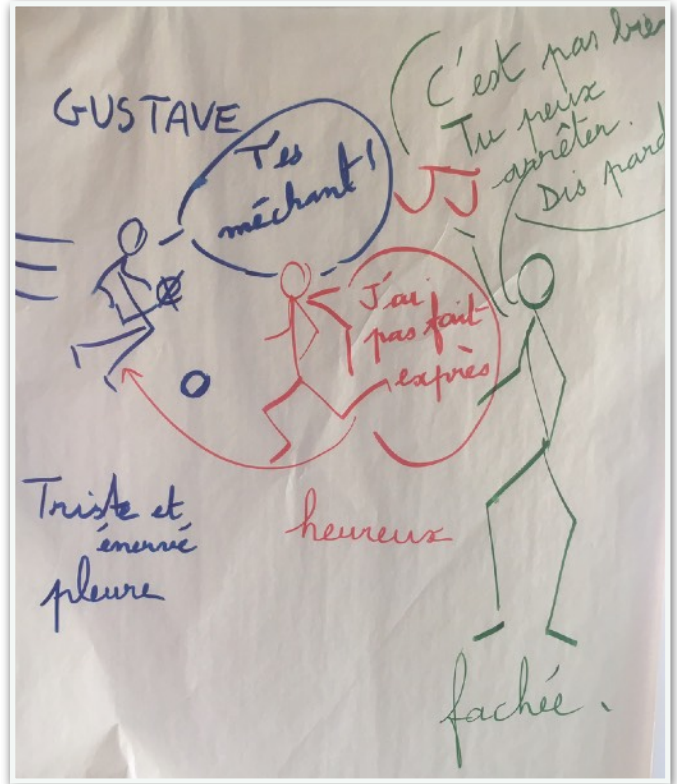 GUSTAVE
T'es
méchant !
C'est pas
Tu peux
arrêter.
Dis
JJ
J'ai
pas fait
exprès
Triste et
énervé
pleure
heureux
fachée.